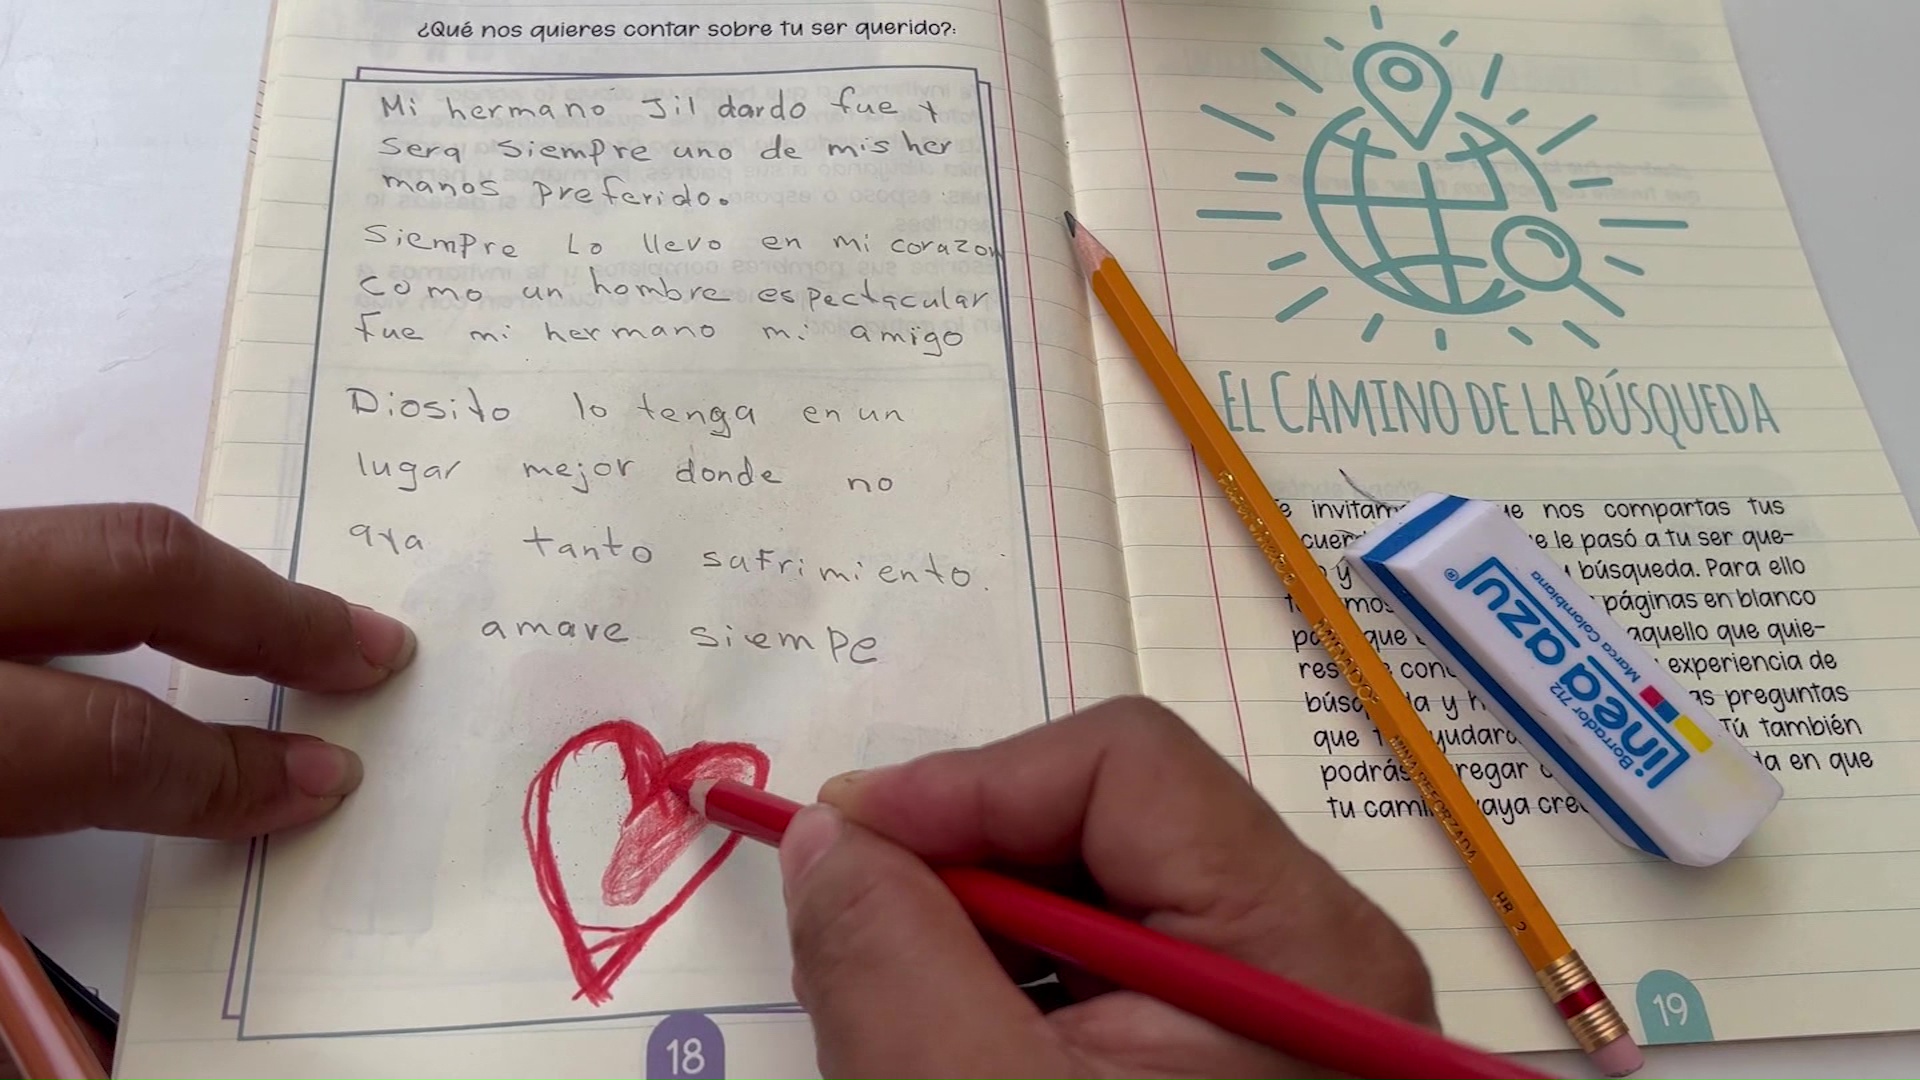 ¿Qué nos quieres contar sobre tu ser querido?:
Mi hermano Jil dardo fue y
sera siempre uno de mis her
manos preferido.
Siempre Lo llevo en mi corazon
Como un hombre espectacular
fue mi hermano mi amigo
Diosito lo tenga en un
lugar mejor donde no
aya tanto safrimiento.
amare siempe
18
EL CAMINO DE LA BÚSQUEDA
invitam ue nos compartas tus
cuer e le pasó a tu ser que-
y búsqueda. Para ello
mos páginas en blanco
que aquello que quie-
res con experiencia de
búsq a y h as preguntas
que yudar Tú también
podrás regar a en que
tu cami vaya cre
19
MIRADO
MINA REFORZADA
HB 2
línea azul
Marca Colombiana
Borrador 712